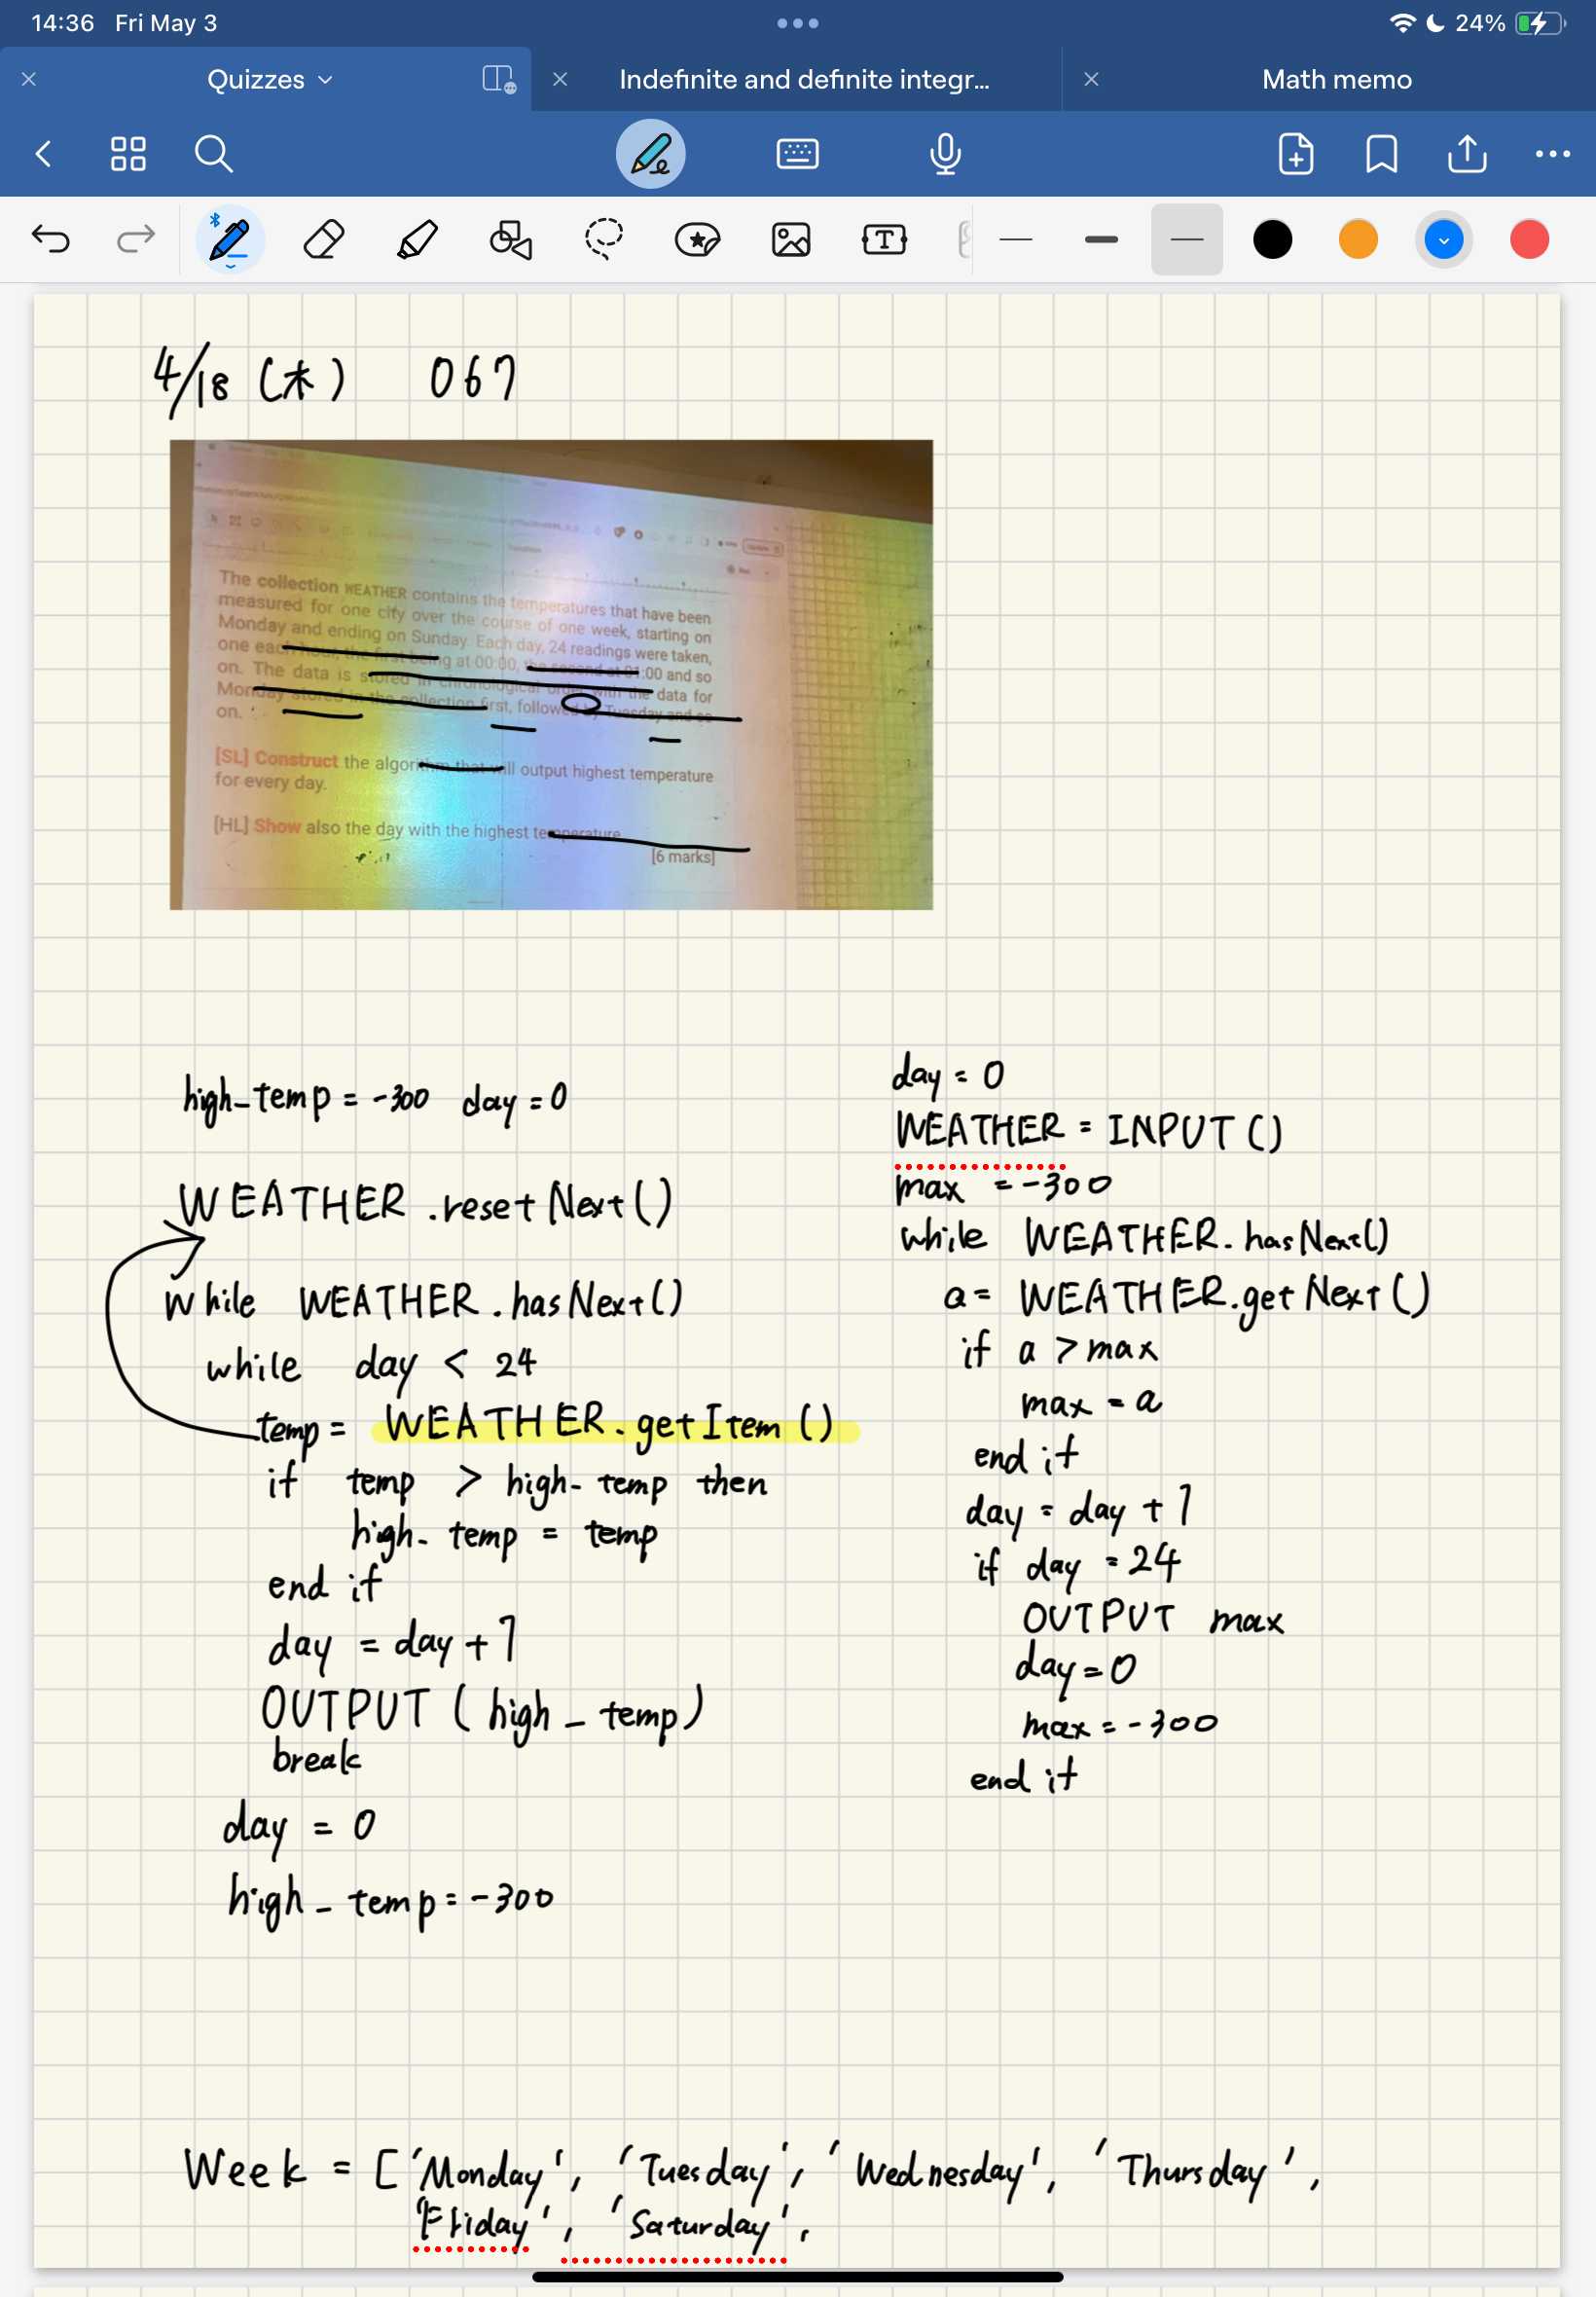 14:36 Fri May 3
24%
Quizzes
Indefinite and definite integr...
Math memo
4/18 (木) 067
The collection WEATHER contains the temperatures that have been
measured for one city over the course of one week, starting on
Monday and ending on Sunday. Each day, 24 readings were taken,
one each hour, the first being at 00:00, the second at 01:00 and so
on. The data is stored in chronological order with the data for
Monday stored in the collection first, followed by Tuesday and so
on.
[SL] Construct the algorithm that will output highest temperature
for every day.
[HL] Show also the day with the highest temperature
[6 marks]
high_temp = -300 day = 0
WEATHER.resetNext()
while WEATHER.hasNext()
while day < 24
temp = WEATHER.getItem()
if temp > high_temp then
high_temp = temp
end if
day = day + 1
OUTPUT (high_temp)
break
day = 0
high_temp = -300
day = 0
WEATHER = INPUT()
max = -300
while WEATHER.hasNext()
a = WEATHER.getNext()
if a > max
max = a
end if
day = day + 1
if day = 24
OUTPUT max
day = 0
max = -300
end if
Week = ['Monday', 'Tuesday', 'Wednesday', 'Thursday',
'Friday', 'Saturday',